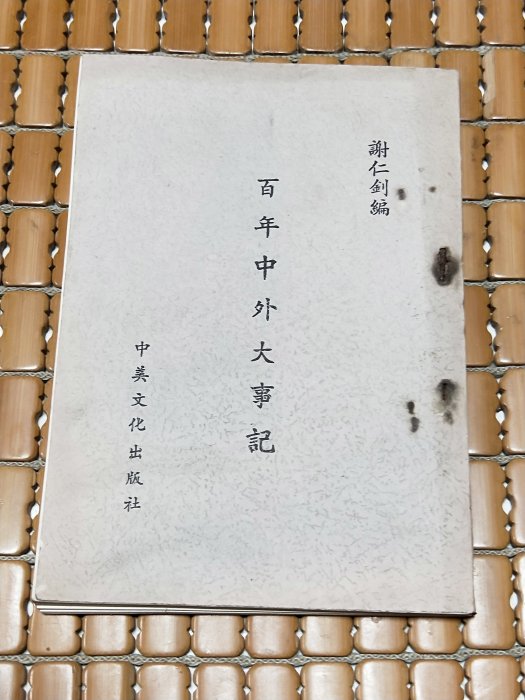 謝仁釗編
百年中外大事記
中美文化出版社